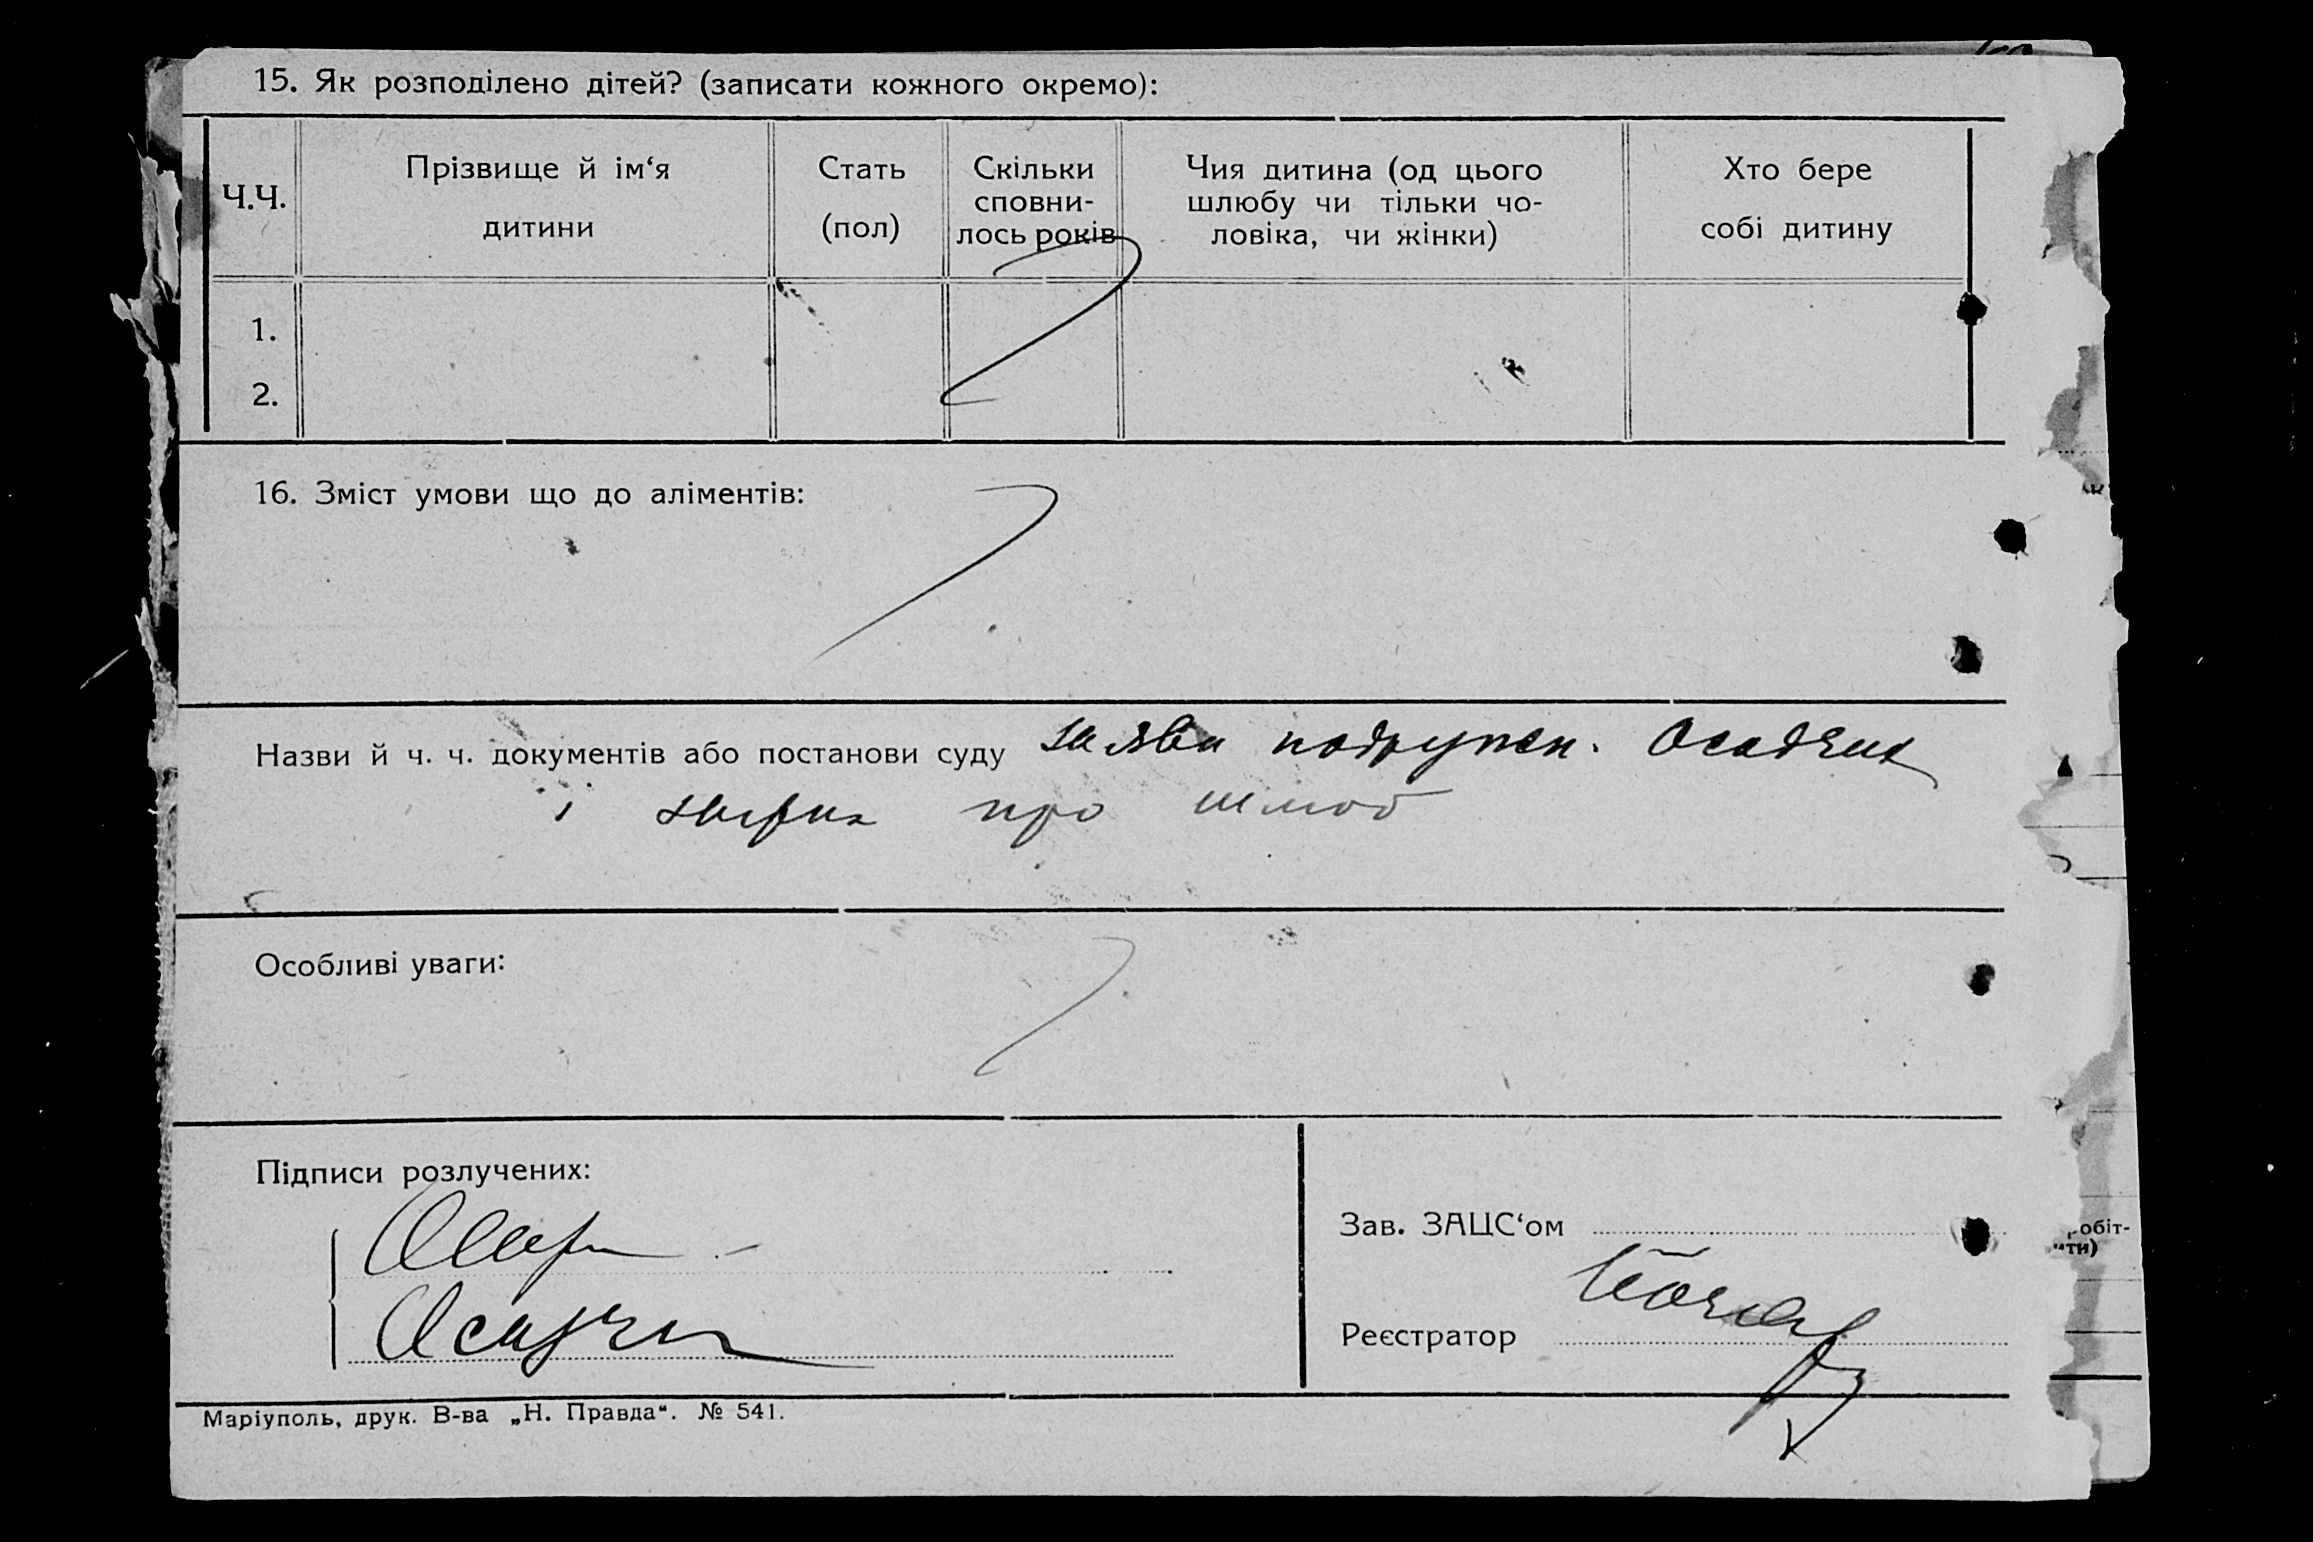 15. Як розподілено дітей? (записати кожного окремо):
Ч.Ч.
Прізвище й ім‘я
дитини
Стать
(пол)
Скільки
сповни-
лось років
Чия дитина (од цього
шлюбу чи тільки чо-
ловіка, чи жінки)
Хто бере
собі дитину
1.
2.
16. Зміст умови що до аліментів:
Назви й ч. ч. документів або постанови суду заява подружж. Осадчих
і про шлюб
Особливі уваги:
Підписи розлучених:
Зав. ЗАЦС‘ом
Реєстратор
Маріуполь, друк. В-ва „Н. Правда“. № 541.
обіт-
ти)